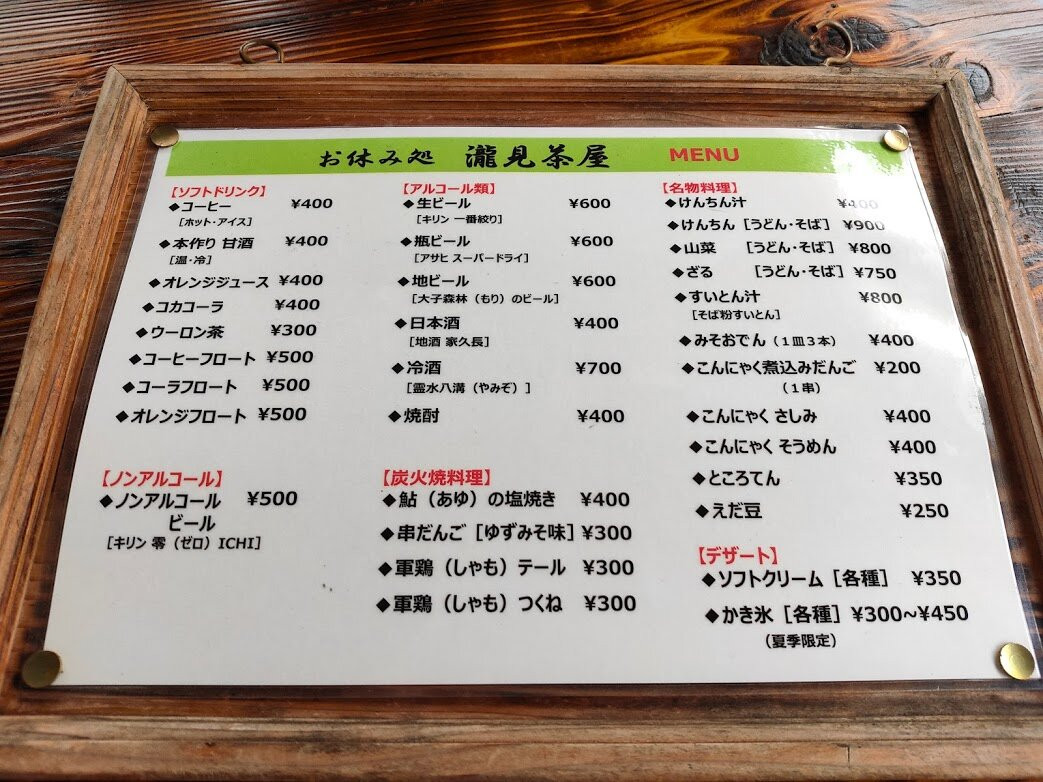 お休み処 瀧見茶屋 MENU
【ソフトドリンク】
◆コーヒー ¥400
［ホット・アイス］
◆本作り 甘酒 ¥400
［温・冷］
◆オレンジジュース ¥400
◆コカコーラ ¥400
◆ウーロン茶 ¥300
◆コーヒーフロート ¥500
◆コーラフロート ¥500
◆オレンジフロート ¥500
【ノンアルコール】
◆ノンアルコール ¥500
ビール
［キリン 零（ゼロ）ICHI］
【アルコール類】
◆生ビール ¥600
［キリン 一番絞り］
◆瓶ビール ¥600
［アサヒ スーパードライ］
◆地ビール ¥600
［大子森林（もり）のビール］
◆日本酒 ¥400
［地酒 家久長］
◆冷酒 ¥700
［霊水八溝（やみぞ）］
◆焼酎 ¥400
【炭火焼料理】
◆鮎（あゆ）の塩焼き ¥400
◆串だんご［ゆずみそ味］¥300
◆軍鶏（しゃも）テール ¥300
◆軍鶏（しゃも）つくね ¥300
【名物料理】
◆けんちん汁
◆けんちん［うどん・そば］ ¥900
◆山菜 ［うどん・そば］ ¥800
◆ざる ［うどん・そば］ ¥750
◆すいとん汁 ¥800
［そば粉すいとん］
◆みそおでん（１皿３本） ¥400
◆こんにゃく煮込みだんご ¥200
（１串）
◆こんにゃく さしみ ¥400
◆こんにゃく そうめん ¥400
◆ところてん ¥350
◆えだ豆 ¥250
【デザート】
◆ソフトクリーム［各種］ ¥350
◆かき氷［各種］¥300～¥450
（夏季限定）